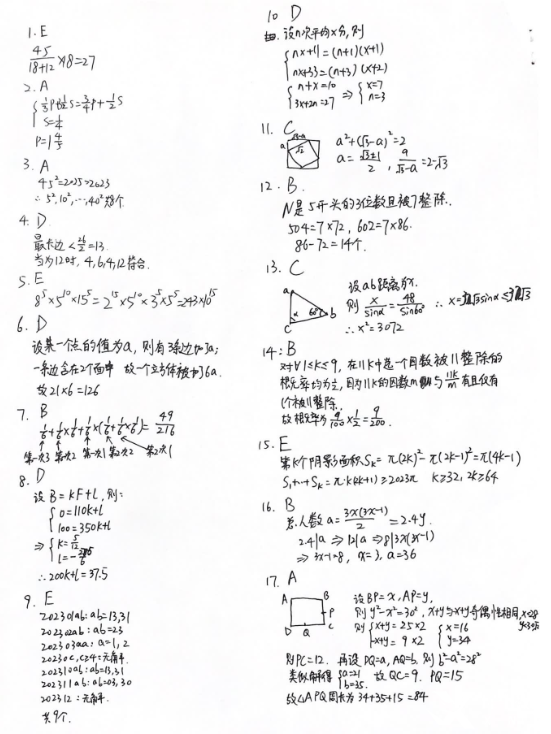 1. E
45/(18+12) ×18=27
2. A
S=1/4
P=1 4/5
3. A
45²=2025>2023
∴ 5²,10²,…,40² 共8个
4. D
最大边 < 26/2=13.
当为12时, 4,6,4,12符合.
5. E
8⁵×5¹⁰×15⁵=2¹⁵×5¹⁰×3⁵×5⁵=243×10¹⁵
6. D
设某一个点的值为a, 则有3条边加了a;
一条边含在2个面中 故一个立方体被加了6a.
故21×6=126
7. B
1/6+1/6×1/6+1/6×(1/6+1/6×1/6)=49/216
第一次3 第一次2 第一次1 第二次2 第二次1
8. D
设B=kF+l, 则:
0=110k+l
100=350k+l
⇒ k=5/12
∴200k+l=37.5
9. E
202301ab: ab=13,31
202302ab: ab=23
202303aa: a=1, 2
20230c, c≥4: 无偶率.
202310ab: ab=13,31
202311ab: ab=03, 30
202312: 无偶率.
共9个.
10 D
设n次平均x分, 则
nx+11=(n+1)(x+1)
nx+33=(n+3)(x+2)
n+x=10
3x+2n=27 ⇒ x=7
n=3
11. C
a √3-a √2
a²+(√3-a)²=2
a=(√3±1)/2, a/(√3-a)=2-√3
12. B.
N是5开头的3位数且被7整除.
504=7×72, 602=7×86.
86-72=14个.
13. C
a α 60° b c
设ab距离为x.
则 x/sinα=48/sin60°
∴ x²=3072
14: B
对∀1≤k≤9, 在11k中选一个因数被11整除的
概率均为1/2, 因为11k的因数m与11k/m有且仅有
1个被11整除.
故概率为 9/100×1/2=9/200.
15. E
第k个阴影面积Sₖ=π(2k)²-π(2k-1)²=π(4k-1)
S₁+…+Sₖ=π·k(2k+1)≥2023π k≥32, 2k≥64
16. B
总人数a=3x(3x-1)/2=2.4y.
2.4|a ⇒ 12|a ⇒ 8|3x(3x-1)
⇒ 3x-1=8, x=3, a=36
17. A
A B P C D Q
设BP=x, AP=y,
则y²-x²=30², x+y与-x+y奇偶性相同,
则 x+y=25×2
-x+y=9×2
x=16
y=34
则PC=12. 再设PQ=a, AQ=b, 则b²-a²=28²
类似解得 a=21
b=35. 故QC=9. PQ=15
故△APQ周长为34+35+15=84